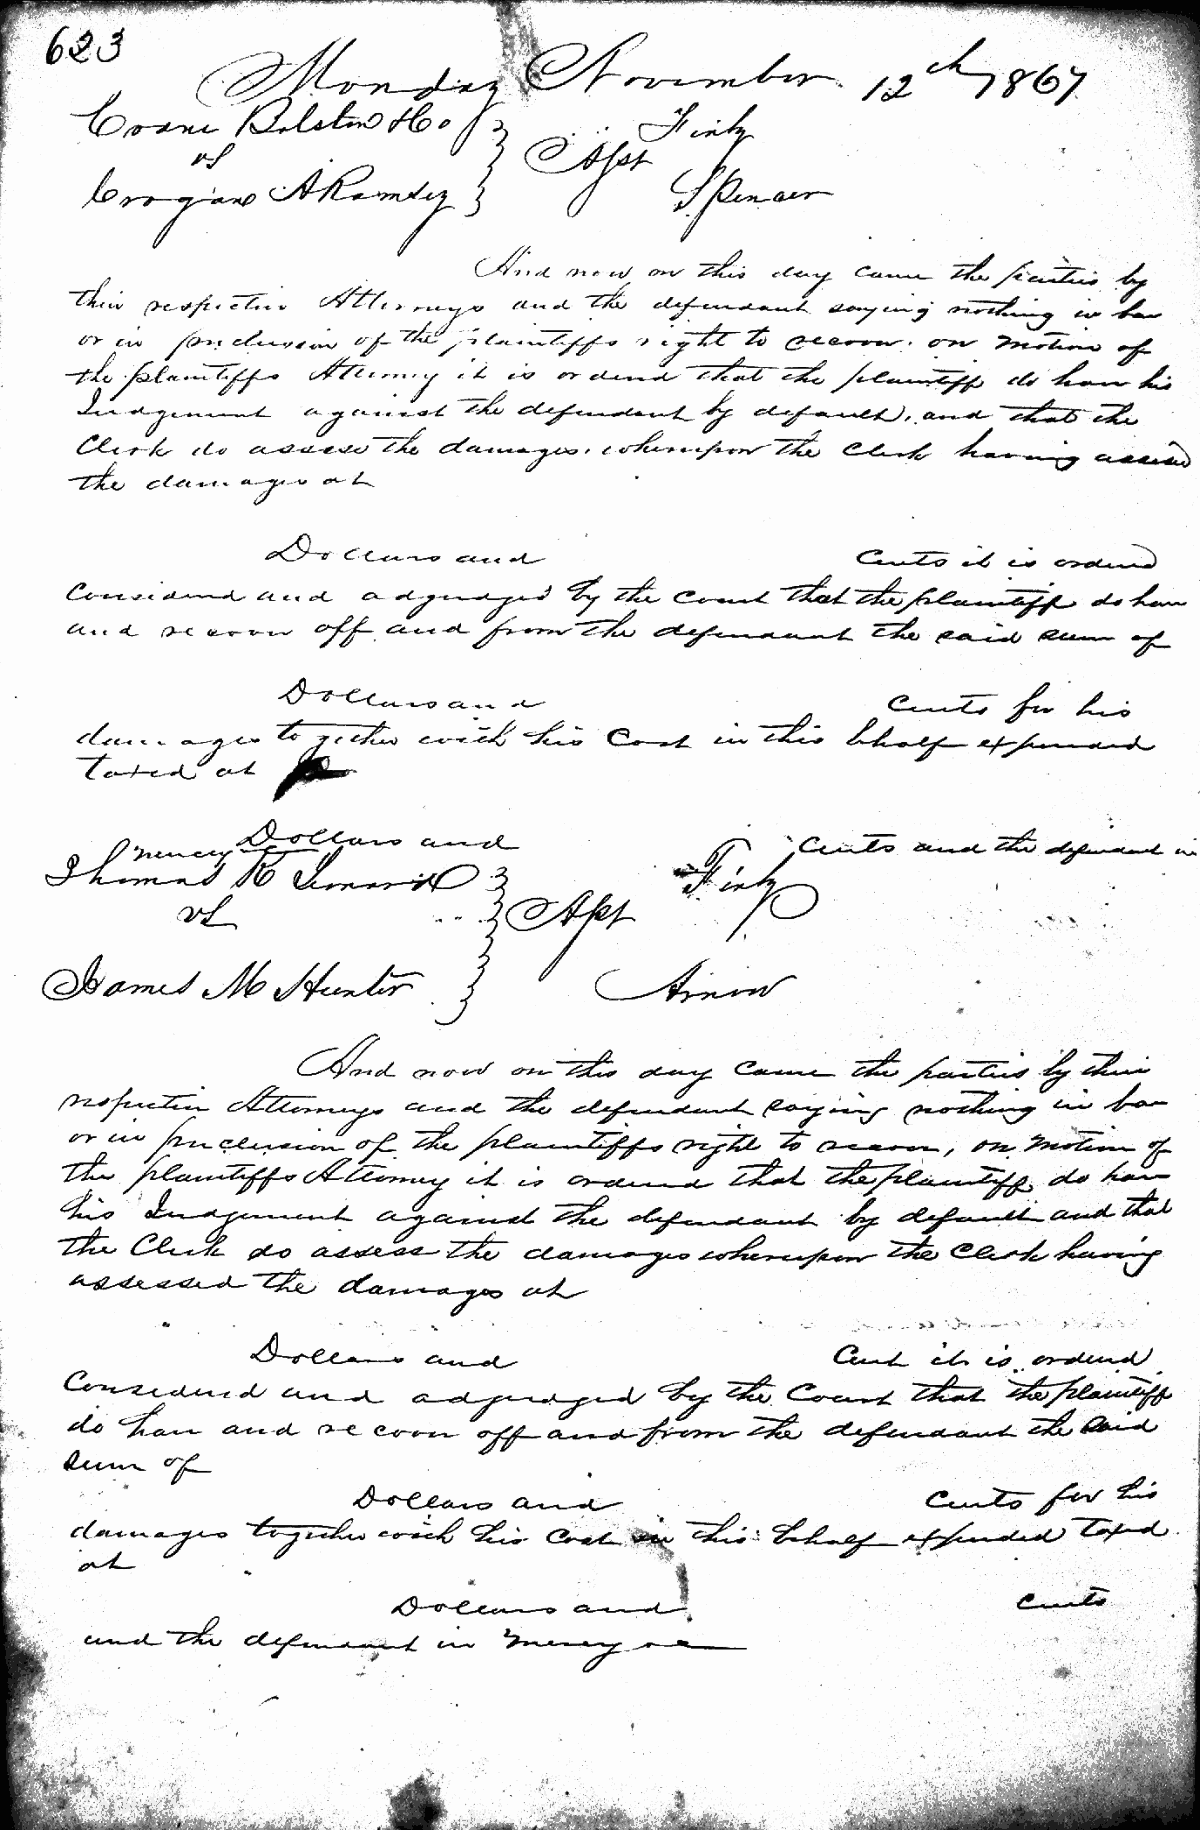 623
Monday November 12th 1867
Evans Bolston & Co
vs
Assst
Finly
Spencer
A Ramsey
And now on this day came the parties by
their respective Attorneys and the defendant saying nothing in bar
or in preclusion of the plaintiffs right to recover. on motion of
the plaintiffs Attorney it is ordered that the plaintiff do have his
Judgement against the defendant by default, and that the
Clerk do assess the damages, whereupon the Clerk having assessed
the damages at
Dollars and Cents it is ordered
Considered and adjudged by the Court that the plaintiff do have
and recover off and from the defendant the said sum of
Dollars and Cents for his
damages together with his Cost in this behalf expended
Taxed at
Dollars and Cents and the defendant in
mercy
Thomas K Leonard
vs
Asst
Finly
James M Hunter
Arnow
And now on this day came the parties by their
respective Attorneys and the defendant saying nothing in bar
or in preclusion of the plaintiffs right to recover, on motion of
the plaintiffs Attorney it is ordered that the plaintiff do have
his Judgement against the defendant by default and that
the Clerk do assess the damages whereupon the Clerk having
assessed the damages at
Dollars and Cent it is ordered
Considered and adjudged by the Court that the plaintiff
do have and recover off and from the defendant the said
sum of
Dollars and Cents for his
damages together with his Cost in this behalf expended Taxed
at
Dollars and Cents
and the defendant in mercy &c